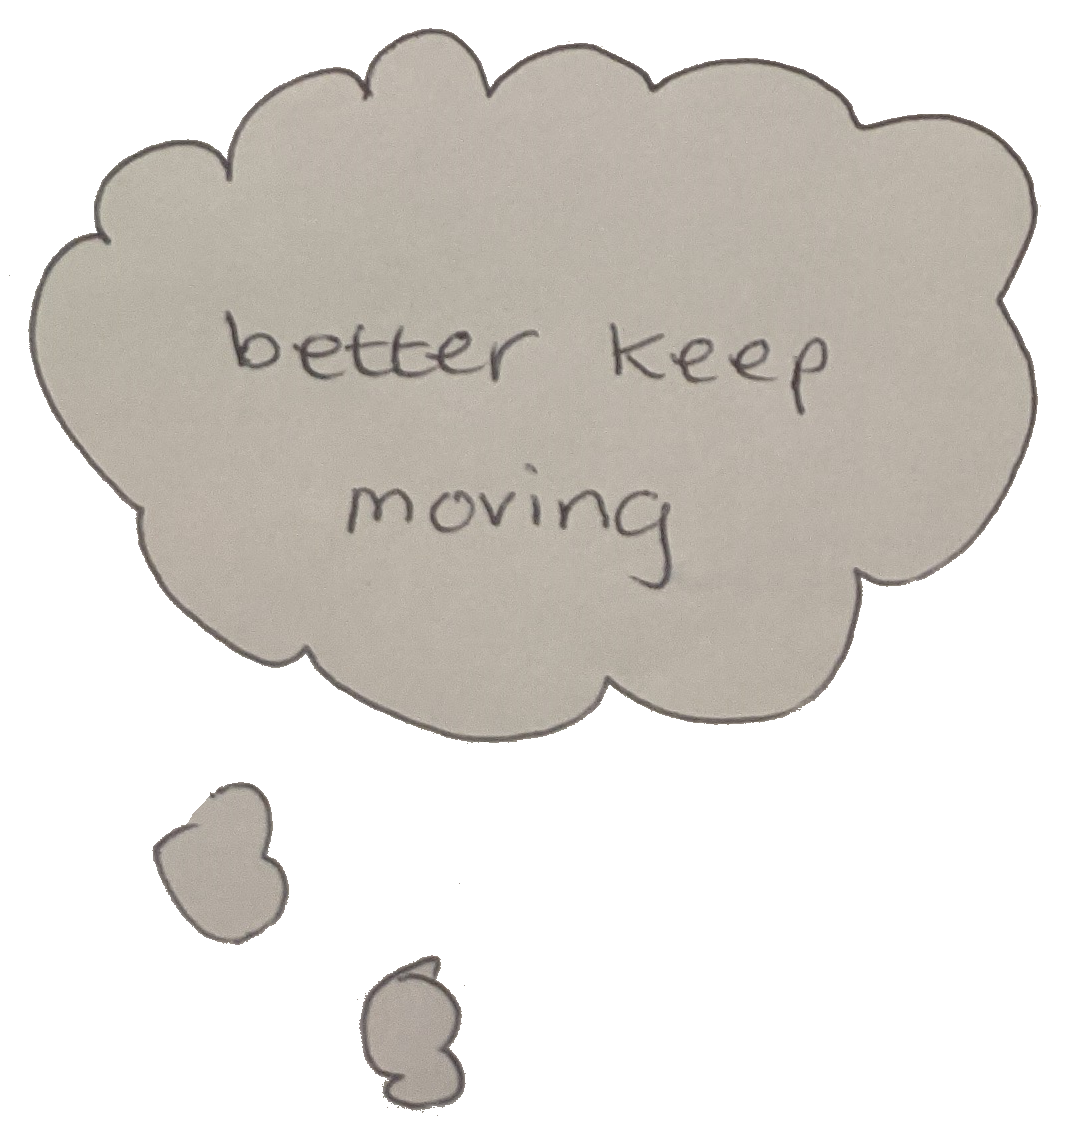 better keep
moving